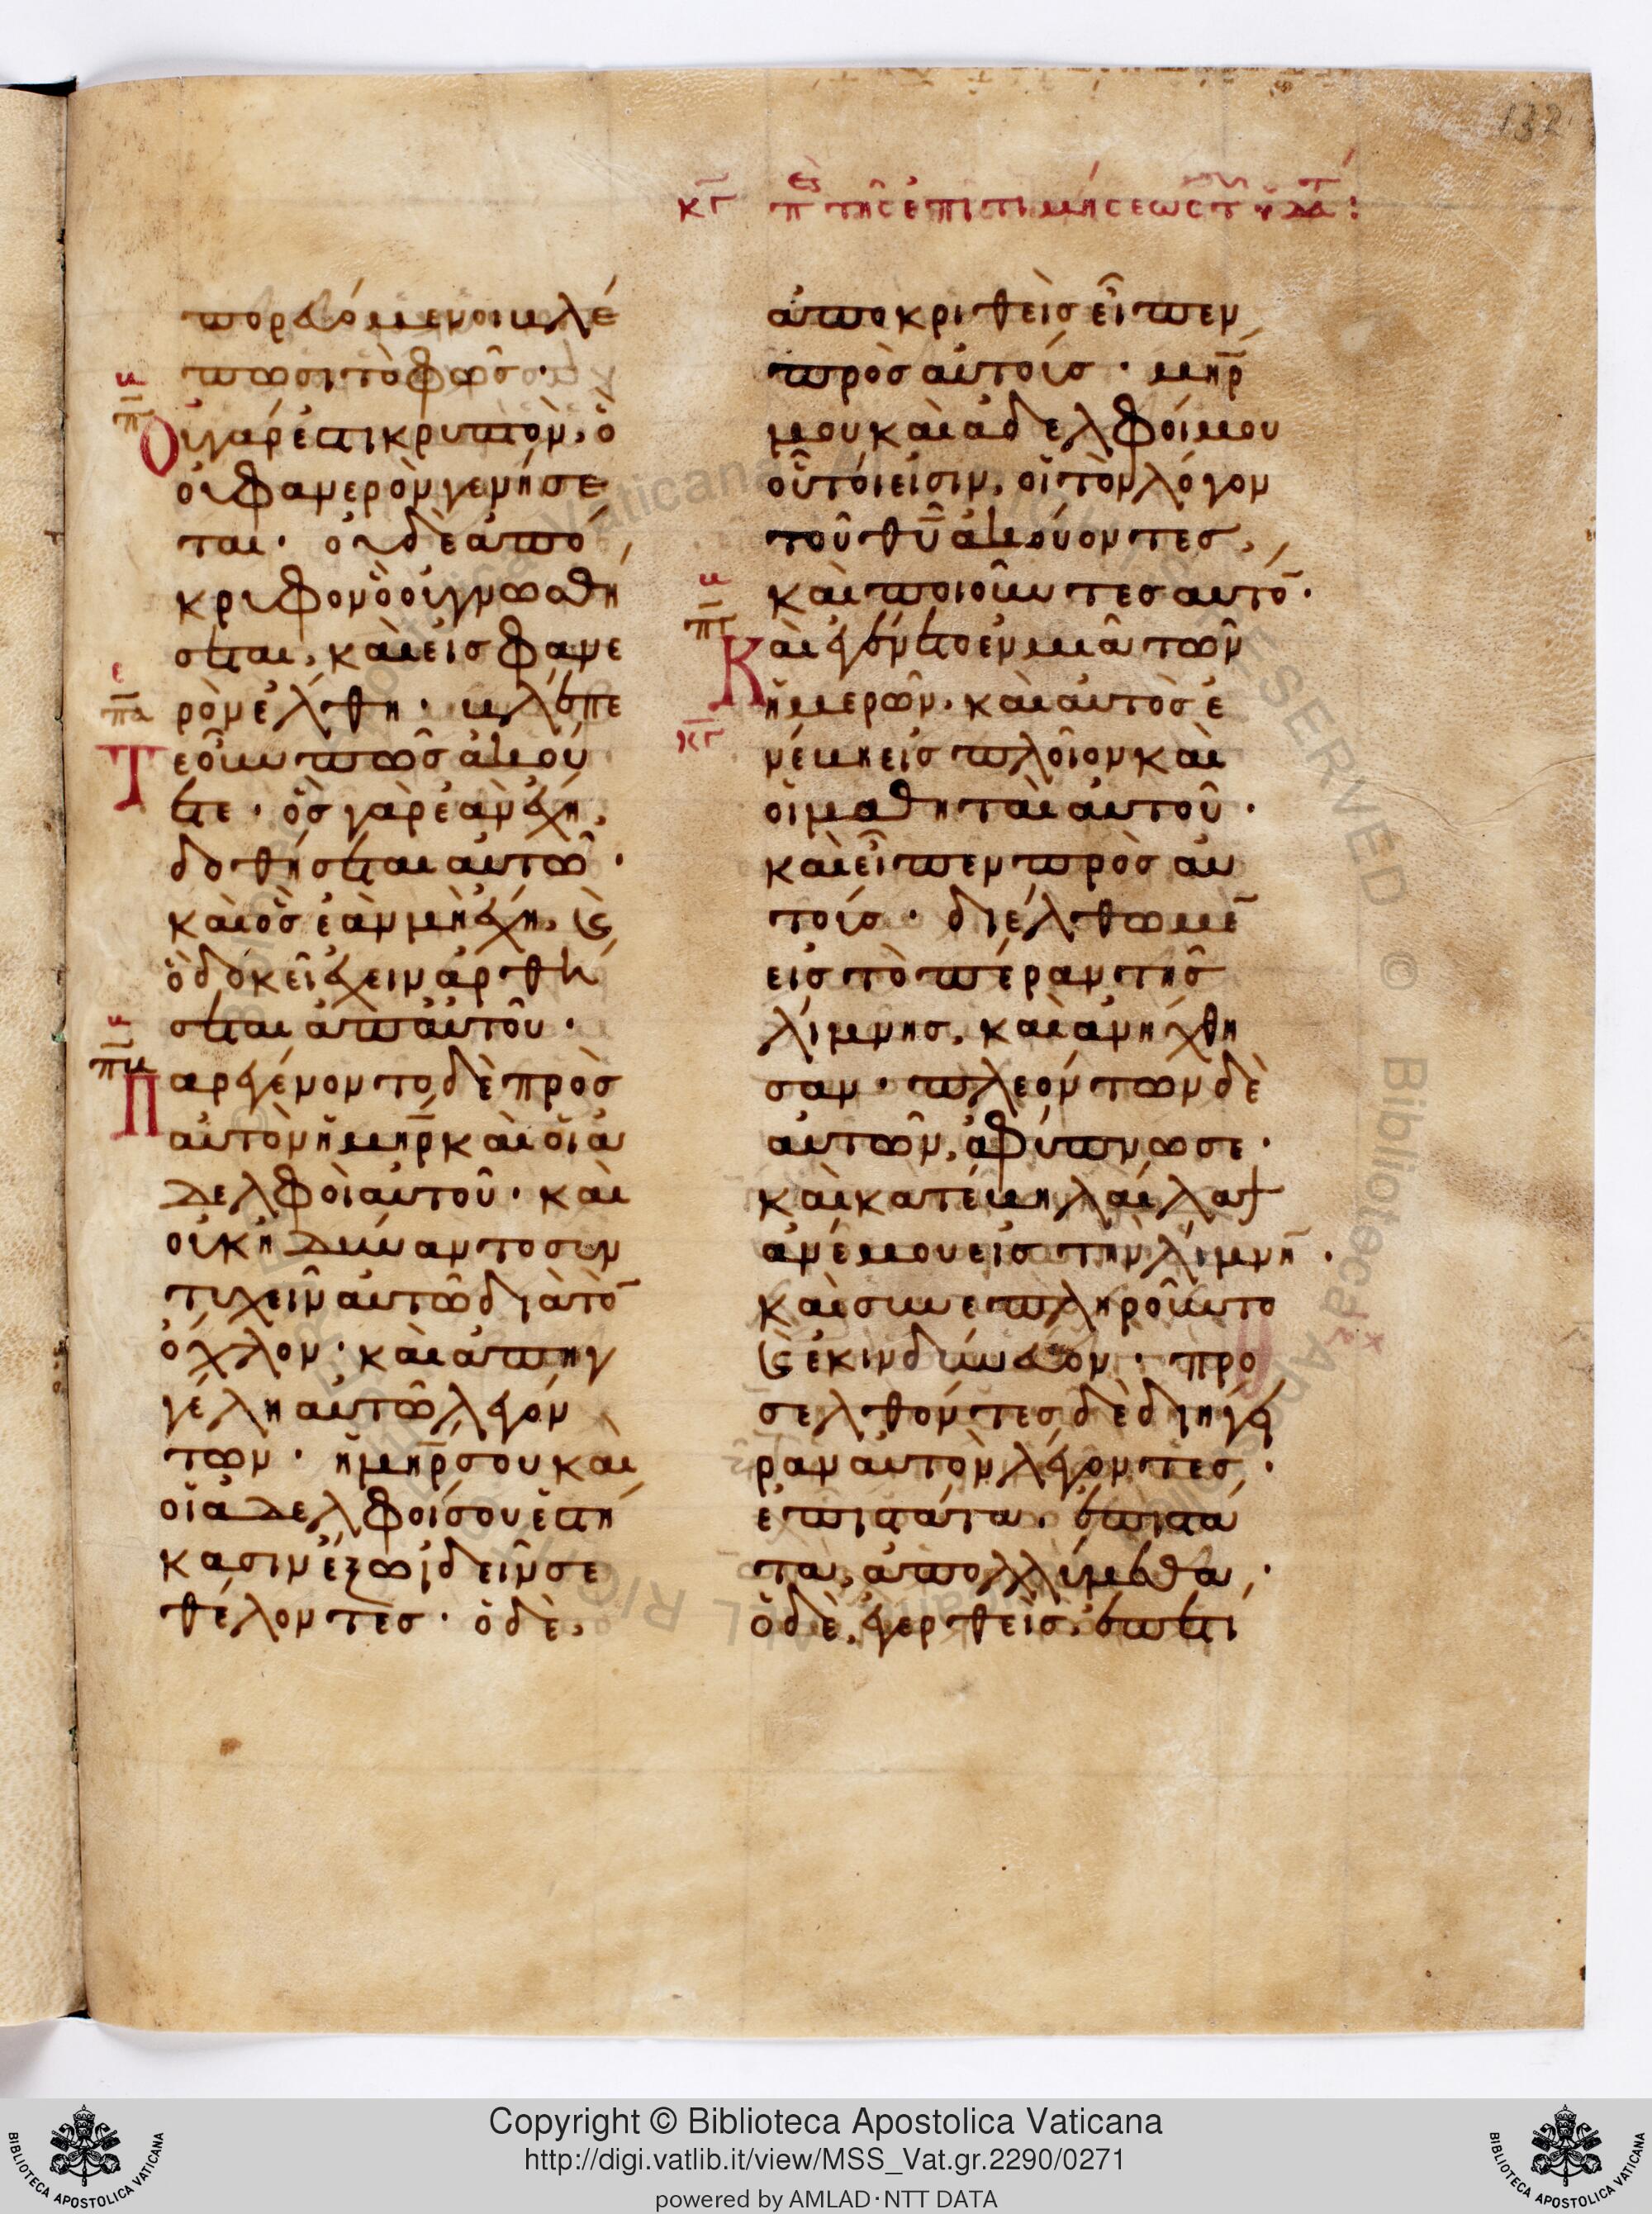 132
κγ πε της επιτιμησεως τ υδατ :
πορευόμενοι βλέ
πωσι τὸ φῶς ·
Οὐ γάρ ἐστι κρυπτὸν, ὃ
οὐ φανερὸν γενήσε
ται · οὐδὲ ἀπό
κρυφον ὃ οὐ γνωσθή
σεται, καὶ εἰς φανε
ρὸν ἔλθη · βλέπε
Τε οὖν πῶς ἀκού
ετε · ὃς γὰρ ἐὰν ἔχη,
δοθήσεται αὐτῶ ·
καὶ ὃς ἐὰν μὴ ἔχη, ϗ
ὃ δοκεῖ ἔχειν ἀρθή
σεται ἀπ αὐτοῦ ·
Παρεγένοντο δὲ πρὸς
αὐτὸν ἡ μηρ καὶ οἱ ἀ
δελφοὶ αὐτοῦ · καὶ
οὐκ ἠδύναντο συν
τυχεῖν αὐτῶ διὰ τὸ
ὄχλον · καὶ ἀπηγ
γέλη αὐτῶ λεγόν
των · ἡ μηρ σου καὶ
οἱ ἀδελφοί σου ἑστή
κασιν ἔξω ἰδεῖν σε
θέλοντες · ὁ δὲ,
ἀποκριθεὶς εἶπεν
πρὸς αὐτοίς · μηρ
μου καὶ ἀδελφοί μου
οὗτοί εἰσιν, οἱ τὸν λόγον
τοῦ θυ ἀκούοντες,
καὶ ποιοῦντες αυτο ·
Καὶ ἐγένετο ἐν μιᾶ τῶν
ἡμερῶν · καὶ αὐτὸς ἐ
νέβη εἰς πλοῖον καὶ
οἱ μαθηταὶ αὐτοῦ ·
καὶ εἶπεν πρὸς αυ
τοίς · διέλθωμε
εἰς τὸ πέραν τῆς
λίμνης, καὶ ἀνήχθη
σαν · πλεόντων δὲ
αὐτῶν, ἀφύπνωσε ·
καὶ κατέβη λαίλαψ
ἀνέμου εἰς τὴν λίμνη ·
καὶ συνεπληροῦντο
ϗ ἐκινδύνευον · προ
σελθόντες δὲ διήγει
ραν αὐτὸν λέγοντες ·
ἐπιστάτα, ἐπιστά
τα, ἀπολλύμεθα ·
ὁ δὲ, ἐγερθεὶς, ἐπετι
Copyright © Biblioteca Apostolica Vaticana
http://digi.vatlib.it/view/MSS_Vat.gr.2290/0271
powered by AMLAD·NTT DATA
BIBLIOTECA APOSTOLICA VATICANA
BIBLIOTECA APOSTOLICA VATICANA